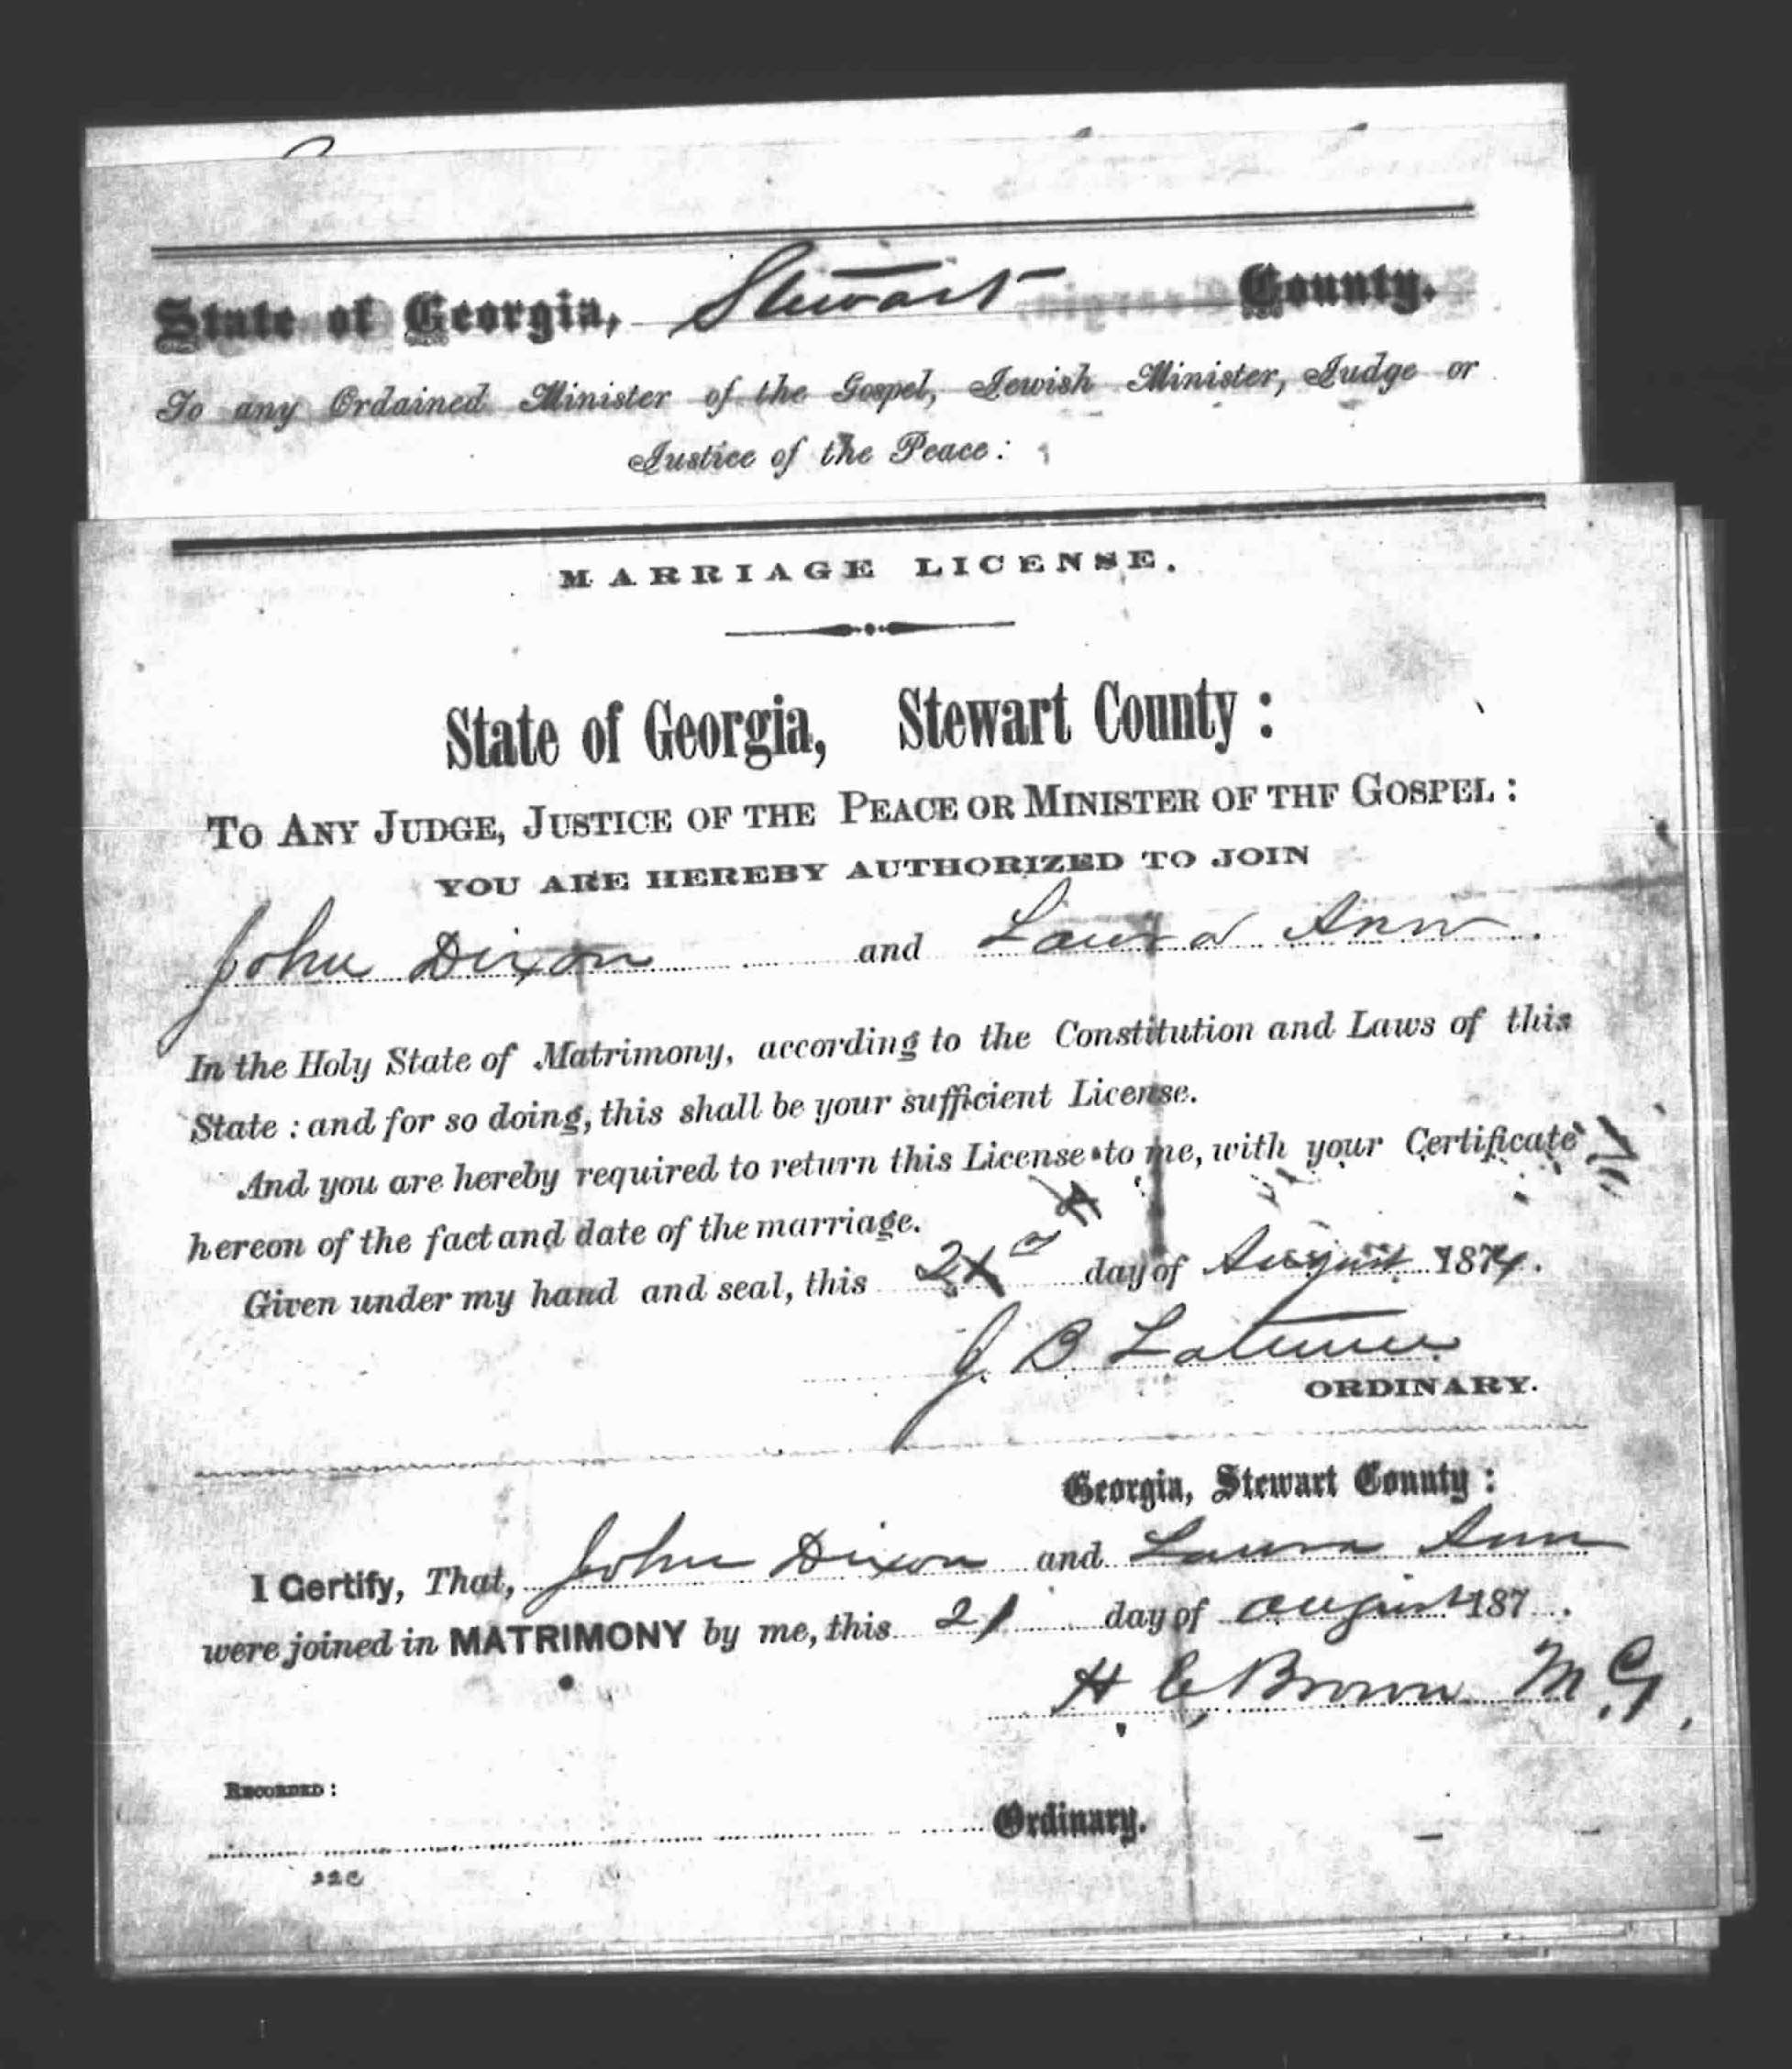 State of Georgia, Stewart County.
To any Ordained Minister of the Gospel, Jewish Minister, Judge or
Justice of the Peace:
MARRIAGE LICENSE.
State of Georgia, Stewart County:
TO ANY JUDGE, JUSTICE OF THE PEACE OR MINISTER OF THE GOSPEL:
YOU ARE HEREBY AUTHORIZED TO JOIN
John Dixon and Laura Ann
In the Holy State of Matrimony, according to the Constitution and Laws of this
State: and for so doing, this shall be your sufficient License.
And you are hereby required to return this License to me, with your Certificate
hereon of the fact and date of the marriage.
Given under my hand and seal, this day of August 1874.
J. B. Latimer
ORDINARY.
Georgia, Stewart County:
I Certify, That, John Dixon and Laura Ann
were joined in MATRIMONY by me, this 21 day of august 187
H C Brown M.G.
RECORDED:
Ordinary.